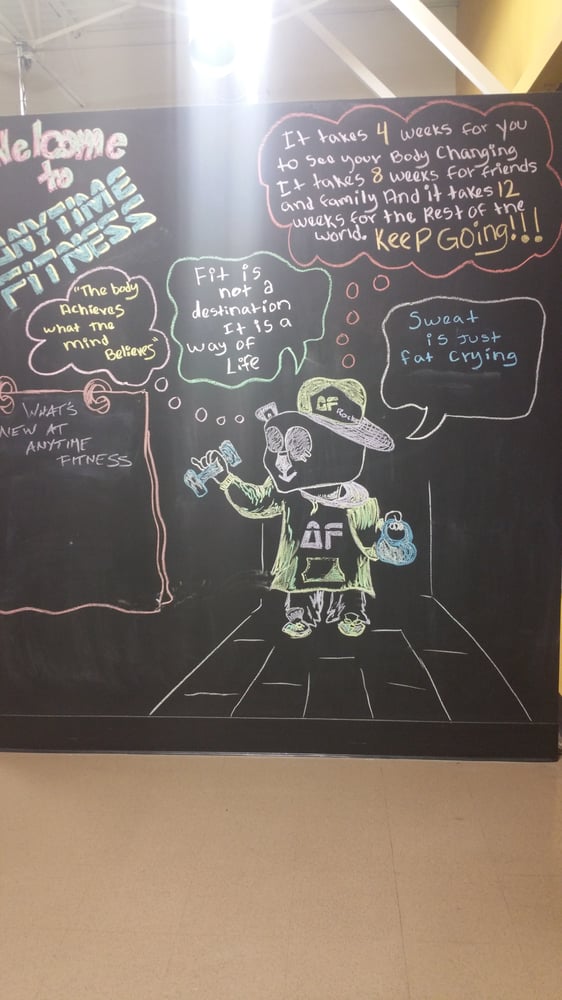 Welcome
to
ANYTIME
FITNESS
It takes 4 weeks for you
to see your Body Changing
It takes 8 weeks for friends
and family And it takes 12
weeks for the Rest of the
world. Keep Going!!!
"The body
Achieves
what The
mind
Believes"
Fit is
not a
destination
It is a
way of
Life
Sweat
is Just
fat Crying
WHAT'S
NEW AT
ANYTIME
FITNESS
AF
AF